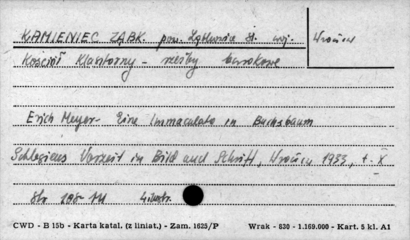 KAMIENIEC ZĄBK. pow. Ząbkowice Śl. woj. Wrocław
Kościół Klasztorny - rzeźby barokowe
Erich Meyer - Eine Immaculata in Buchsbaum
Schlesiens Vorzeit in Bild und Schrift, 1933, t. X
Str.
CWD - B 15b - Karta katal. (z liniat.) - Zam. 1625/P Wrak - 630 - 1.169.000 - Kart. 5 kl. A1